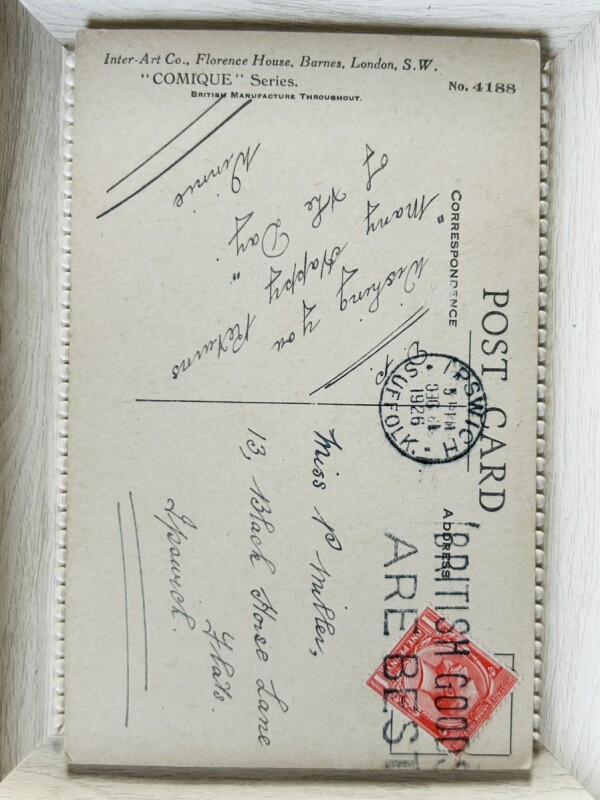 Inter-Art Co., Florence House, Barnes, London, S.W.
"COMIQUE" Series.
No. 4188
BRITISH MANUFACTURE THROUGHOUT.
POST CARD
CORRESPONDENCE
ADDRESS
" Wishing you
Many Happy Returns
of the Day "
Winnie
IPSWICH
DEC
1926
SUFFOLK.
BRITISH GOODS
ARE BEST
Miss P Miller,
13, Black Horse Lane
Flats.
Ipswich.